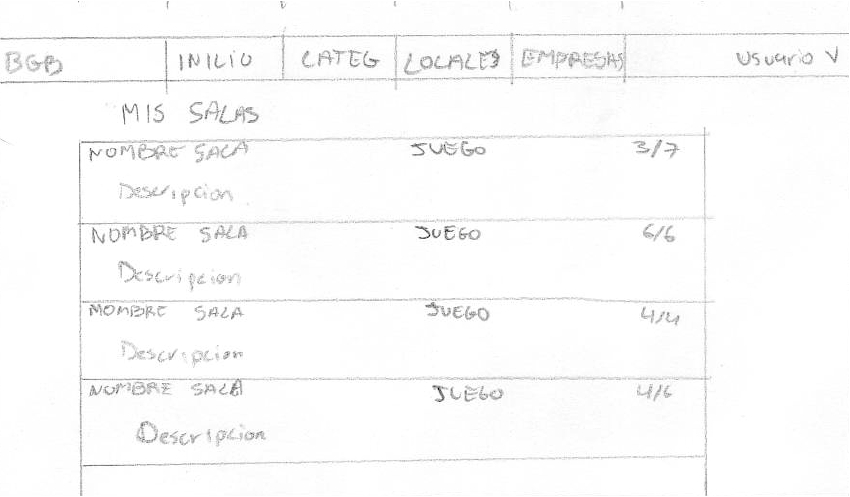 BGB INICIO CATEG LOCALES EMPRESAS Usuario V
MIS SALAS
NOMBRE SALA JUEGO 3/7
Descripcion
NOMBRE SALA JUEGO 6/6
Descripcion
NOMBRE SALA JUEGO 4/4
Descripcion
NOMBRE SALA JUEGO 4/6
Descripcion